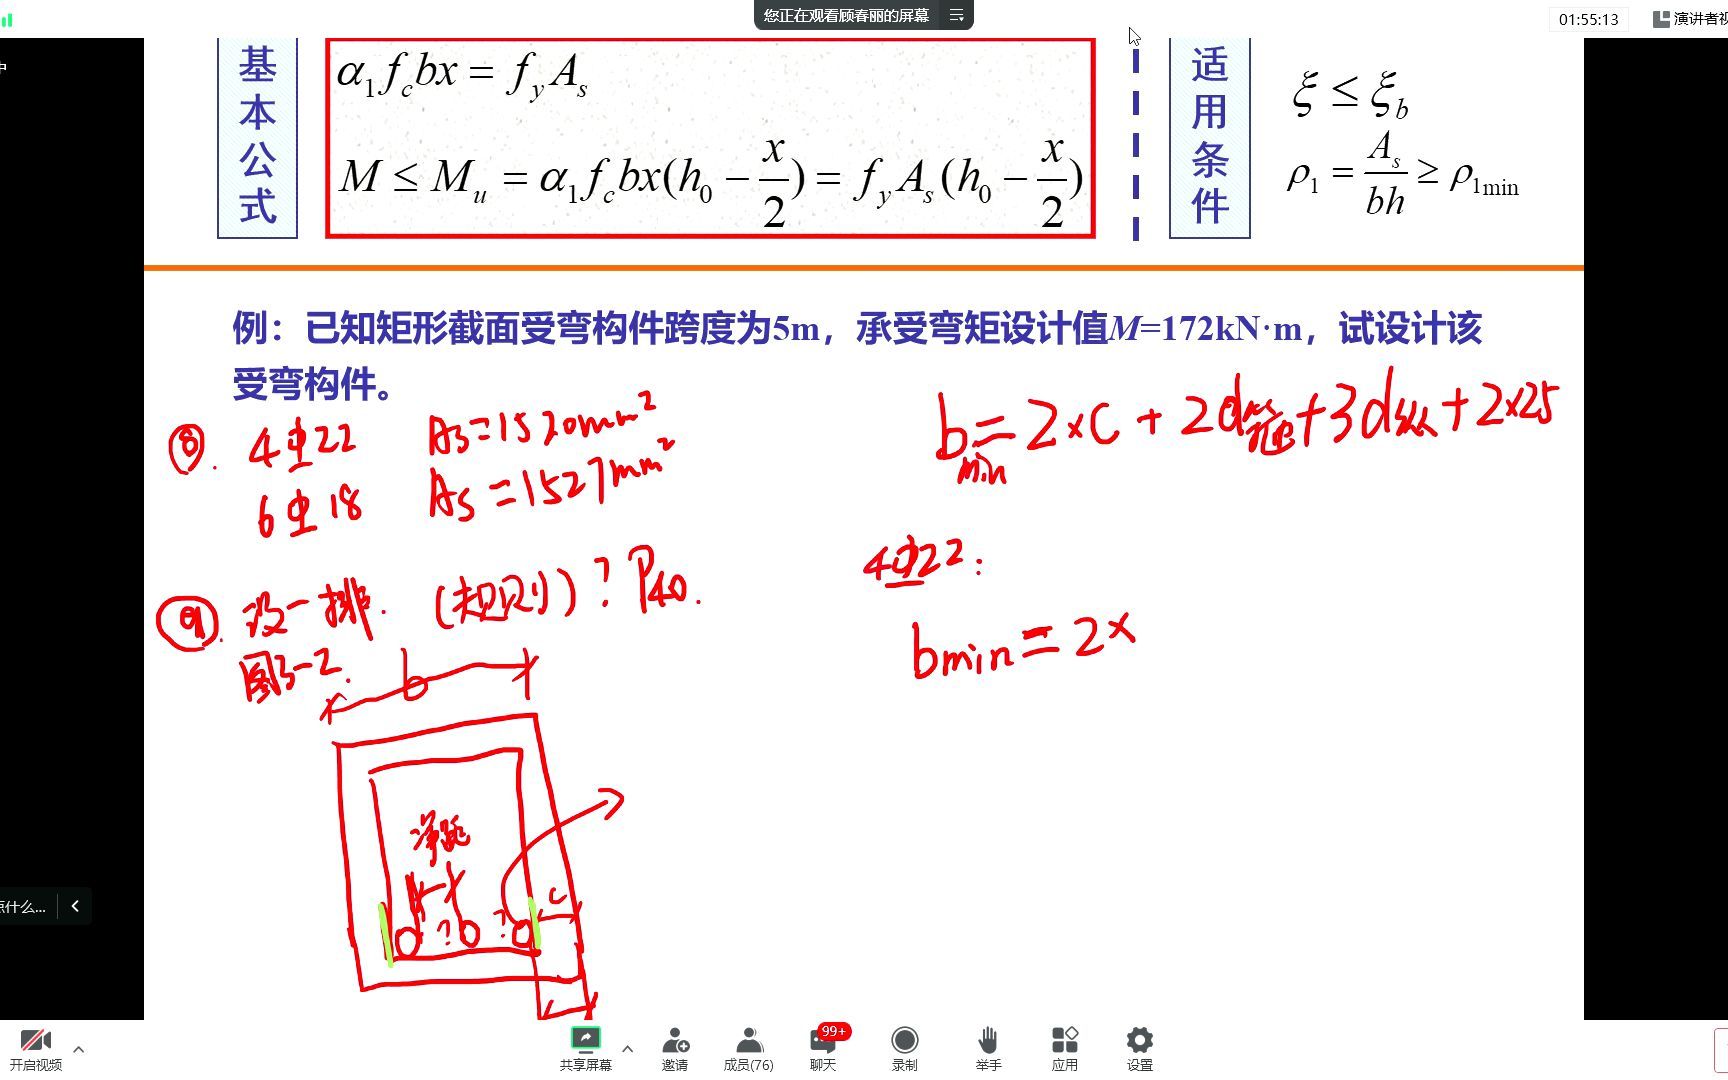 您正在观看顾春丽的屏幕
01:55:13
演讲者视
中
基本公式
α₁f_cbx = f_yA_s
M ≤ M_u = α₁f_cbx(h₀ − x/2) = f_yA_s(h₀ − x/2)
适用条件
ξ ≤ ξ_b
ρ₁ = A_s/bh ≥ ρ₁min
例：已知矩形截面受弯构件跨度为5m，承受弯矩设计值M=172kN·m，试设计该
受弯构件。
⑧. 4Φ22 As=1520mm²
6Φ18 As=1527mm²
b min = 2×c + 2d箍 + 3d纵 + 2×25
4Φ22:
bmin = 2×
⑨. 设一排. (规则)? P40.
图3-2.
b
净距
c
? ?
点什么...
开启视频
共享屏幕
邀请
成员(76)
99+
聊天
录制
举手
应用
设置